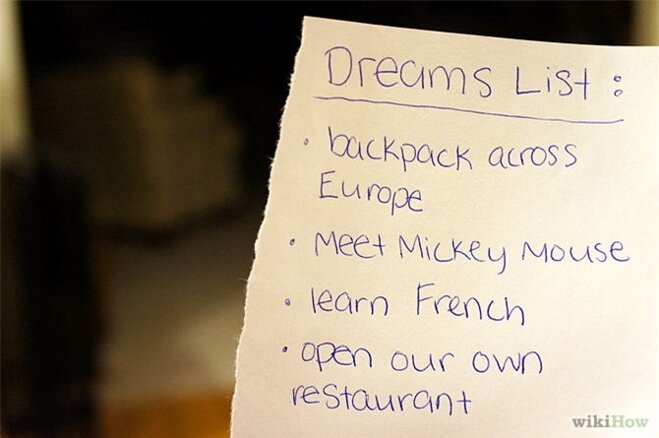 Dreams List :
• backpack across
Europe
• Meet Mickey Mouse
• learn French
• open our own
restaurant
wikiHow